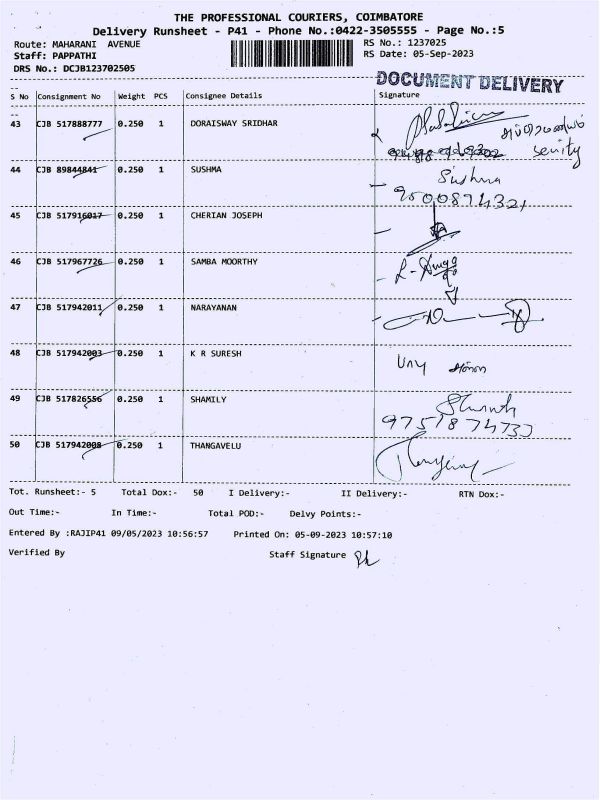 THE PROFESSIONAL COURIERS, COIMBATORE
Delivery Runsheet - P41 - Phone No.:0422-3505555 - Page No.:5
Route: MAHARANI AVENUE RS No.: 1237025
Staff: PAPPATHI RS Date: 05-Sep-2023
DRS No.: DCJB123702505
DOCUMENT DELIVERY
S No Consignment No Weight PCS Consignee Details Signature
43 CJB 517888777 0.250 1 DORAISWAY SRIDHAR
44 CJB 89844841 0.250 1 SUSHMA Sushma
9500874321
45 CJB 517916017 0.250 1 CHERIAN JOSEPH
46 CJB 517967726 0.250 1 SAMBA MOORTHY
47 CJB 517942011 0.250 1 NARAYANAN
48 CJB 517942003 0.250 1 K R SURESH
49 CJB 517826556 0.250 1 SHAMILY
9751874733
50 CJB 517942008 0.250 1 THANGAVELU
Tot. Runsheet:- 5 Total Dox:- 50 I Delivery:- II Delivery:- RTN Dox:-
Out Time:- In Time:- Total POD:- Delvy Points:-
Entered By :RAJIP41 09/05/2023 10:56:57 Printed On: 05-09-2023 10:57:10
Verified By Staff Signature